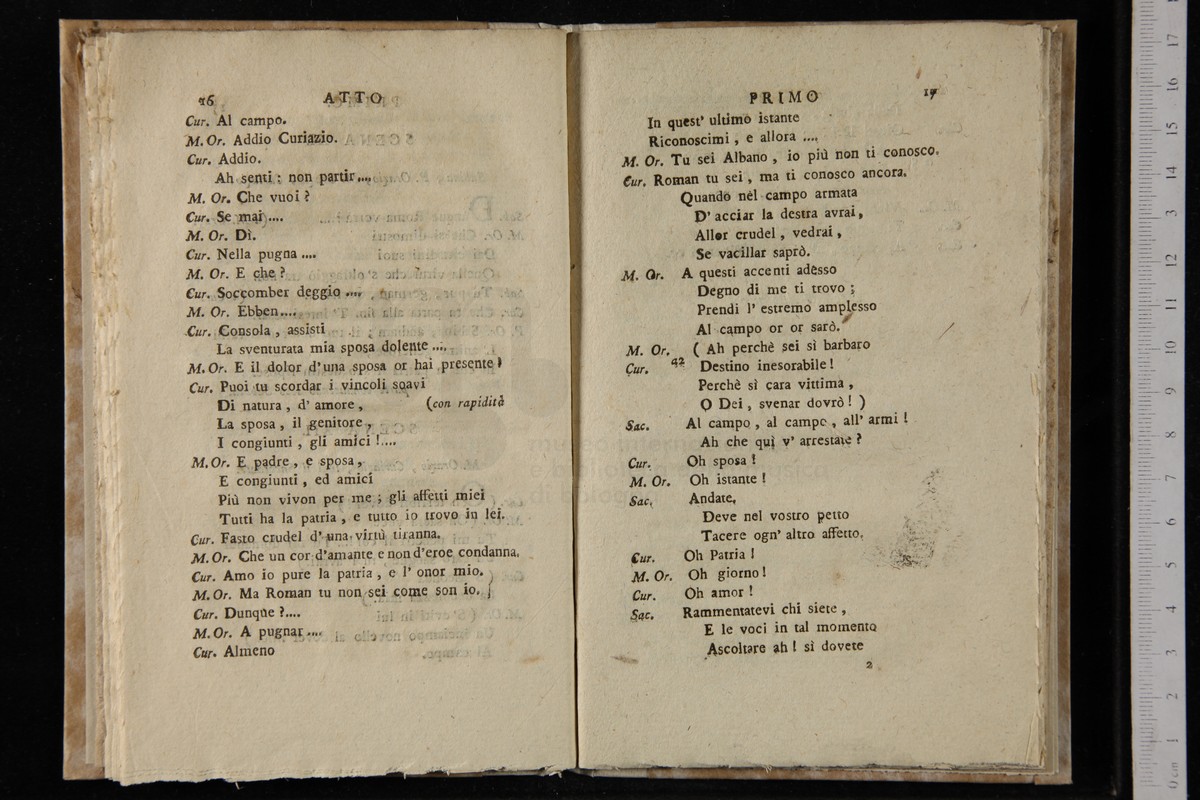 16 ATTO
Cur. Al campo.
M. Or. Addio Curiazio.
Cur. Addio.
Ah senti : non partir....
M. Or. Che vuoi ?
Cur. Se mai ....
M. Or. Dì.
Cur. Nella pugna ....
M. Or. E che ?
Cur. Soccomber deggio ....
M. Or. Ebben....
Cur. Consola , assisti
La sventurata mia sposa dolente ....
M. Or. E il dolor d'una sposa or hai presente ?
Cur. Puoi tu scordar i vincoli soavi
Di natura , d' amore , (con rapidità
La sposa , il genitore ,
I congiunti , gli amici !....
M. Or. E padre , e sposa ,
E congiunti , ed amici
Più non vivon per me ; gli affetti miei
Tutti ha la patria , e tutto io trovo in lei.
Cur. Fasto crudel d' una virtù tiranna.
M. Or. Che un cor d'amante e non d'eroe condanna.
Cur. Amo io pure la patria , e l' onor mio.
M. Or. Ma Roman tu non sei come son io.
Cur. Dunque ?....
M. Or. A pugnar....
Cur. Almeno
PRIMO 17
In quest' ultimo istante
Riconoscimi , e allora ....
M. Or. Tu sei Albano , io più non ti conosco.
Cur. Roman tu sei , ma ti conosco ancora.
Quando nel campo armata
D' acciar la destra avrai,
Allor crudel , vedrai ,
Se vacillar saprò.
M. Or. A questi accenti adesso
Degno di me ti trovo ;
Prendi l' estremo amplesso
Al campo or or sarò.
M. Or. ( Ah perchè sei sì barbaro
Cur. a2 Destino inesorabile !
Perchè sì cara vittima ,
O Dei , svenar dovrò ! )
Sac. Al campo , al campo , all' armi !
Ah che quì v' arrestate ?
Cur. Oh sposa !
M. Or. Oh istante !
Sac. Andate,
Deve nel vostro petto
Tacere ogn' altro affetto.
Cur. Oh Patria !
M. Or. Oh giorno !
Cur. Oh amor !
Sac. Rammentatevi chi siete ,
E le voci in tal momento
Ascoltare ah ! sì dovete
2